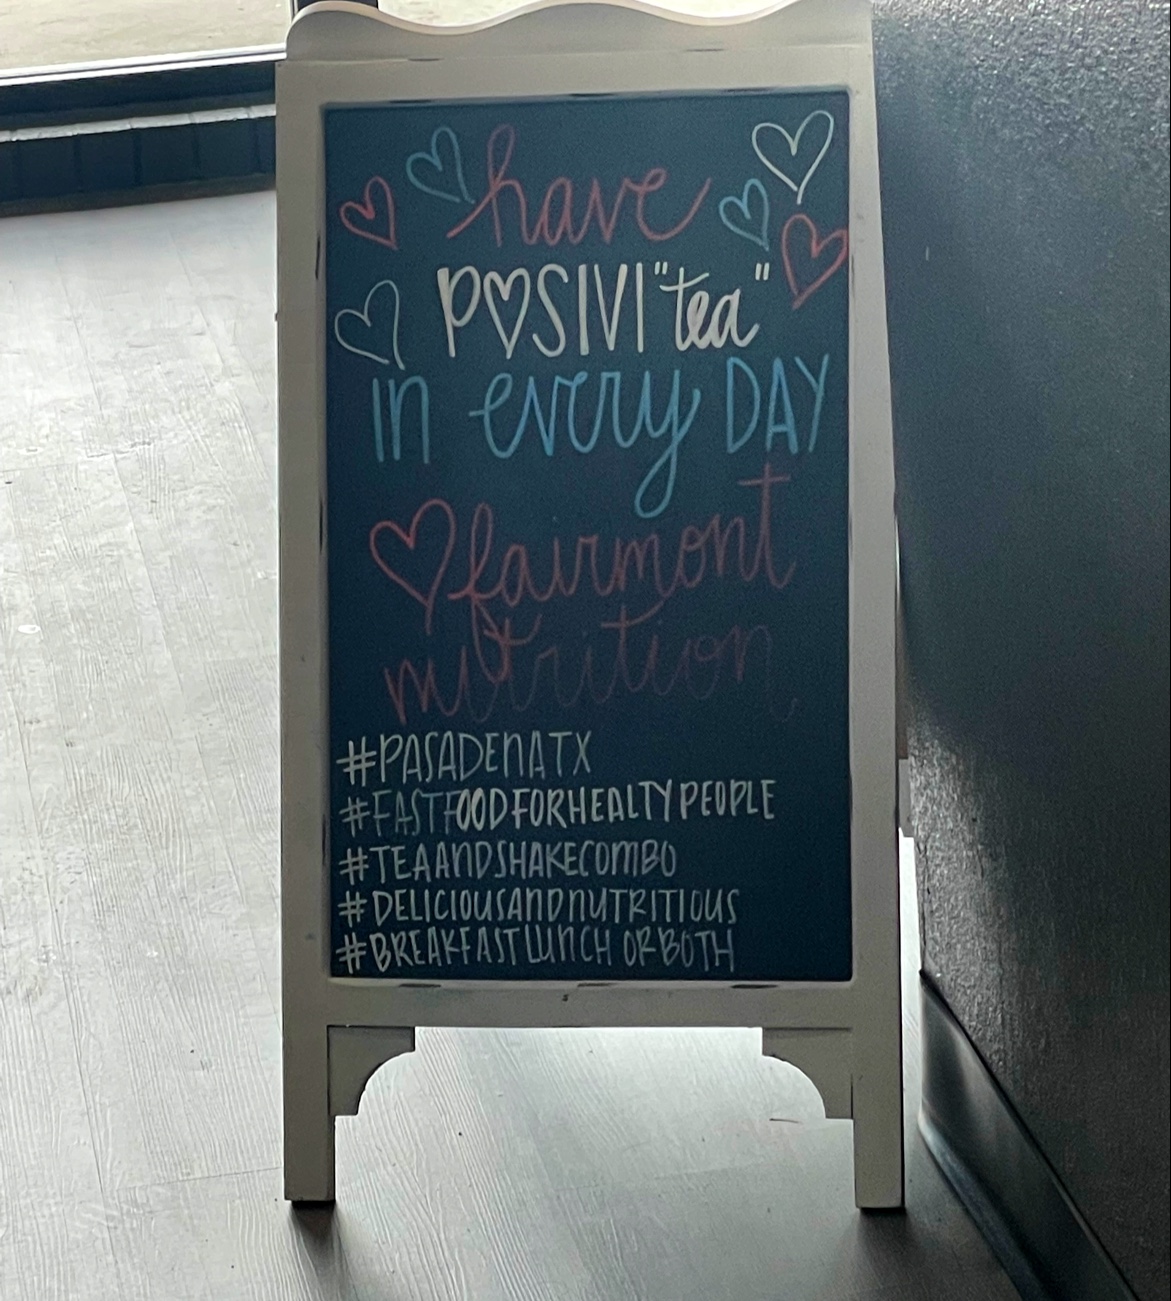 have
P♡SIVI"tea"
in every DAY
♡fairmont
nutrition
#PASADENATX
#FASTFOODFORHEALTYPEOPLE
#TEAANDSHAKECOMBO
#DELICIOUSANDNUTRITIOUS
#BREAKFASTLUNCH ORBOTH